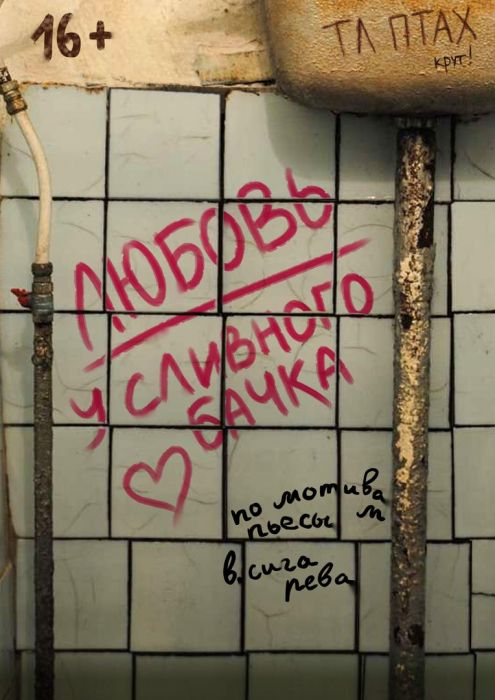 16+
ТЛ ПТАХ
круг!
ЛЮБОВЬ
У СЛИВНОГО
БАЧКА
по мотива
м
пьесы
В. сига
рева